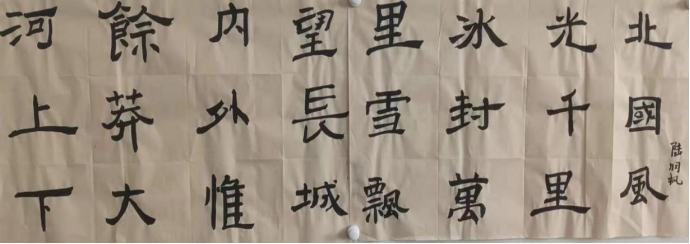 北國風
光千里
冰封萬
里雪飄
望長城
内外惟
餘莽大
河上下